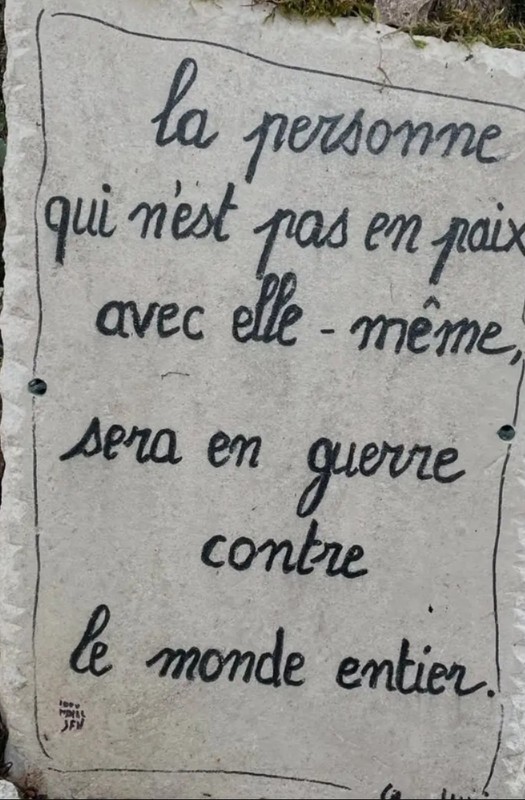 la personne
qui n'est pas en paix
avec elle-même,
sera en guerre
contre
le monde entier.